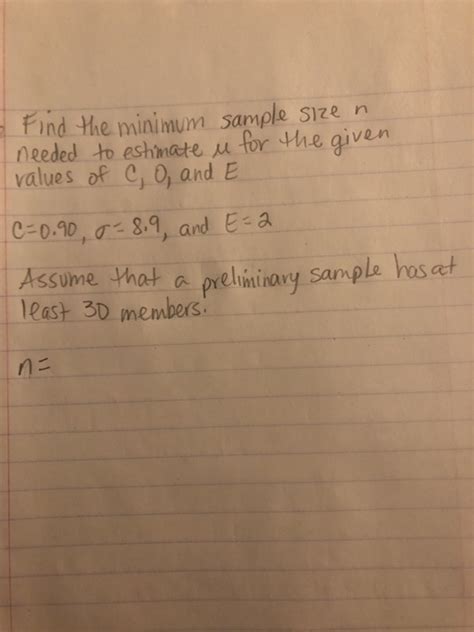 Find the minimum sample size n
needed to estimate μ for the given
values of C, O, and E
C=0.90, σ= 8.9, and E=2
Assume that a preliminary sample has at
least 30 members.
n=